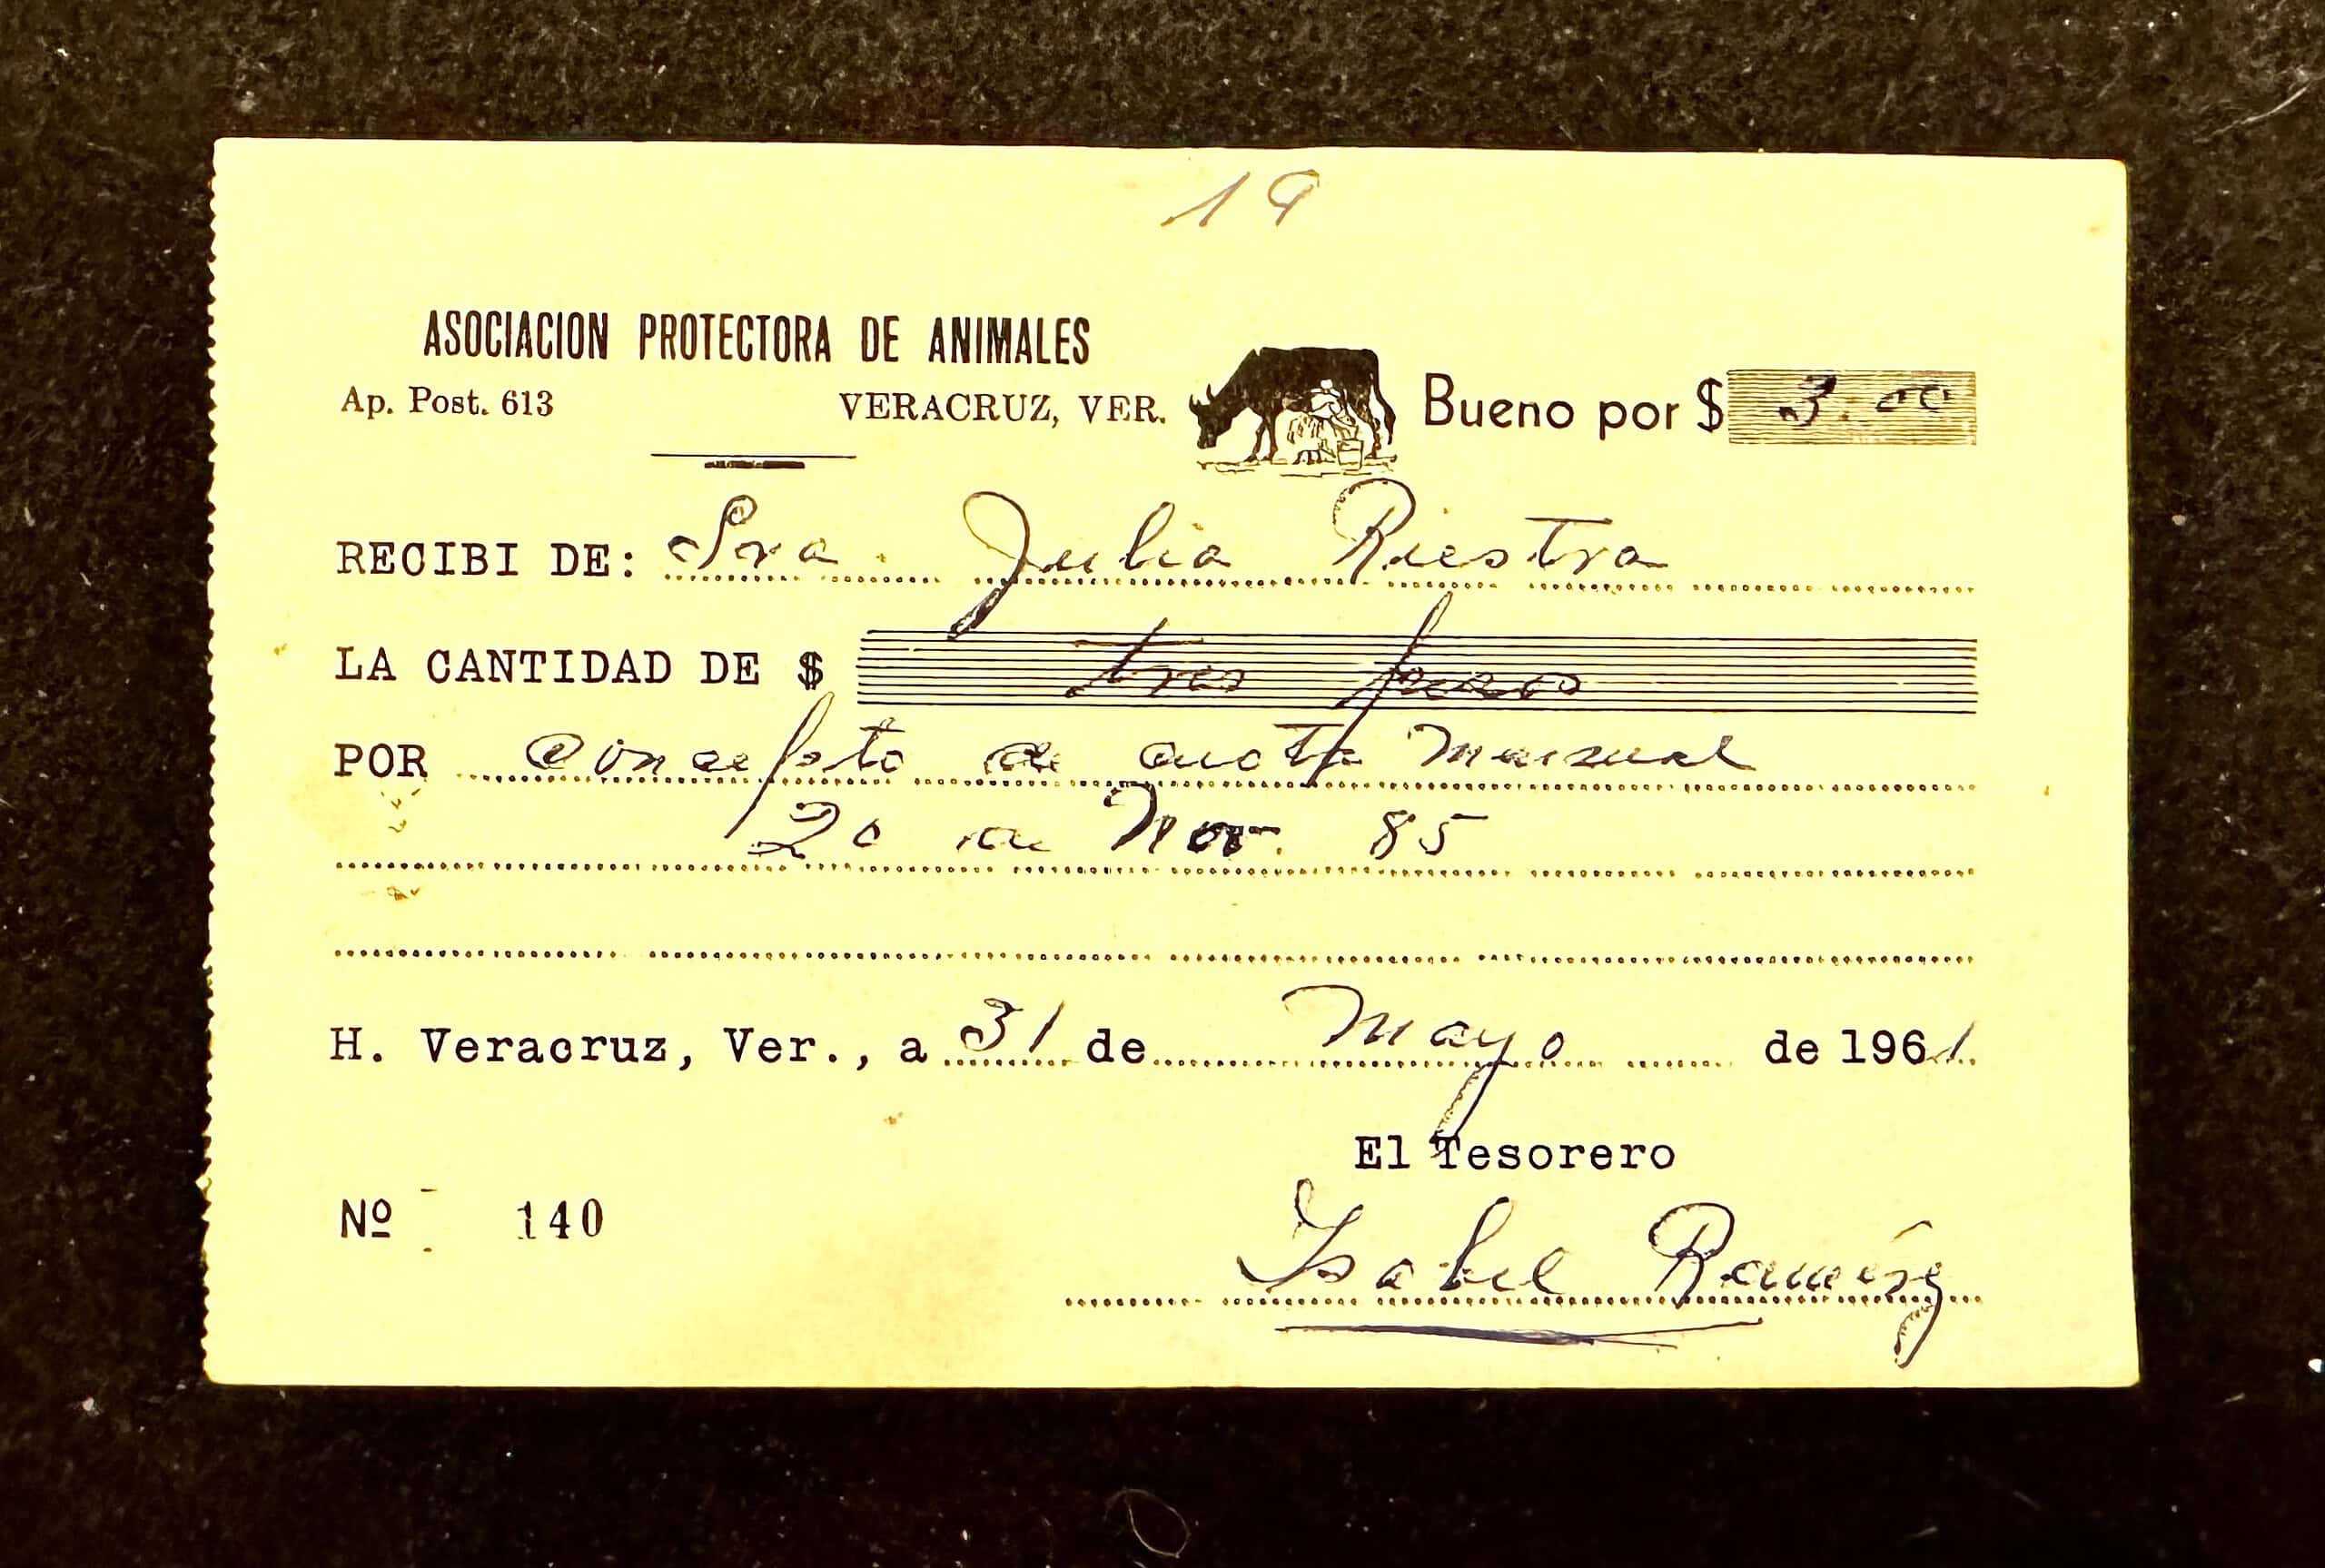 19
ASOCIACION PROTECTORA DE ANIMALES
Ap. Post. 613 VERACRUZ, VER. Bueno por $ 3.00
RECIBI DE: Sra. Julia Riestra
LA CANTIDAD DE $ tres pesos
POR concepto de cuota mensual
20 de Nov. 85
H. Veracruz, Ver., a 31 de Mayo de 1961
El Tesorero
Nº 140
Isabel Ramírez